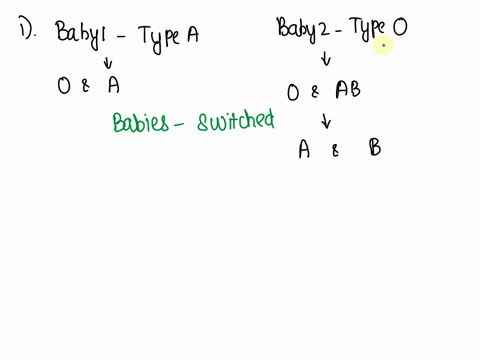 1). Baby1 - Type A
↓
O & A
Baby2 - Type O
↓
O & AB
↓
A & B
Babies - switched